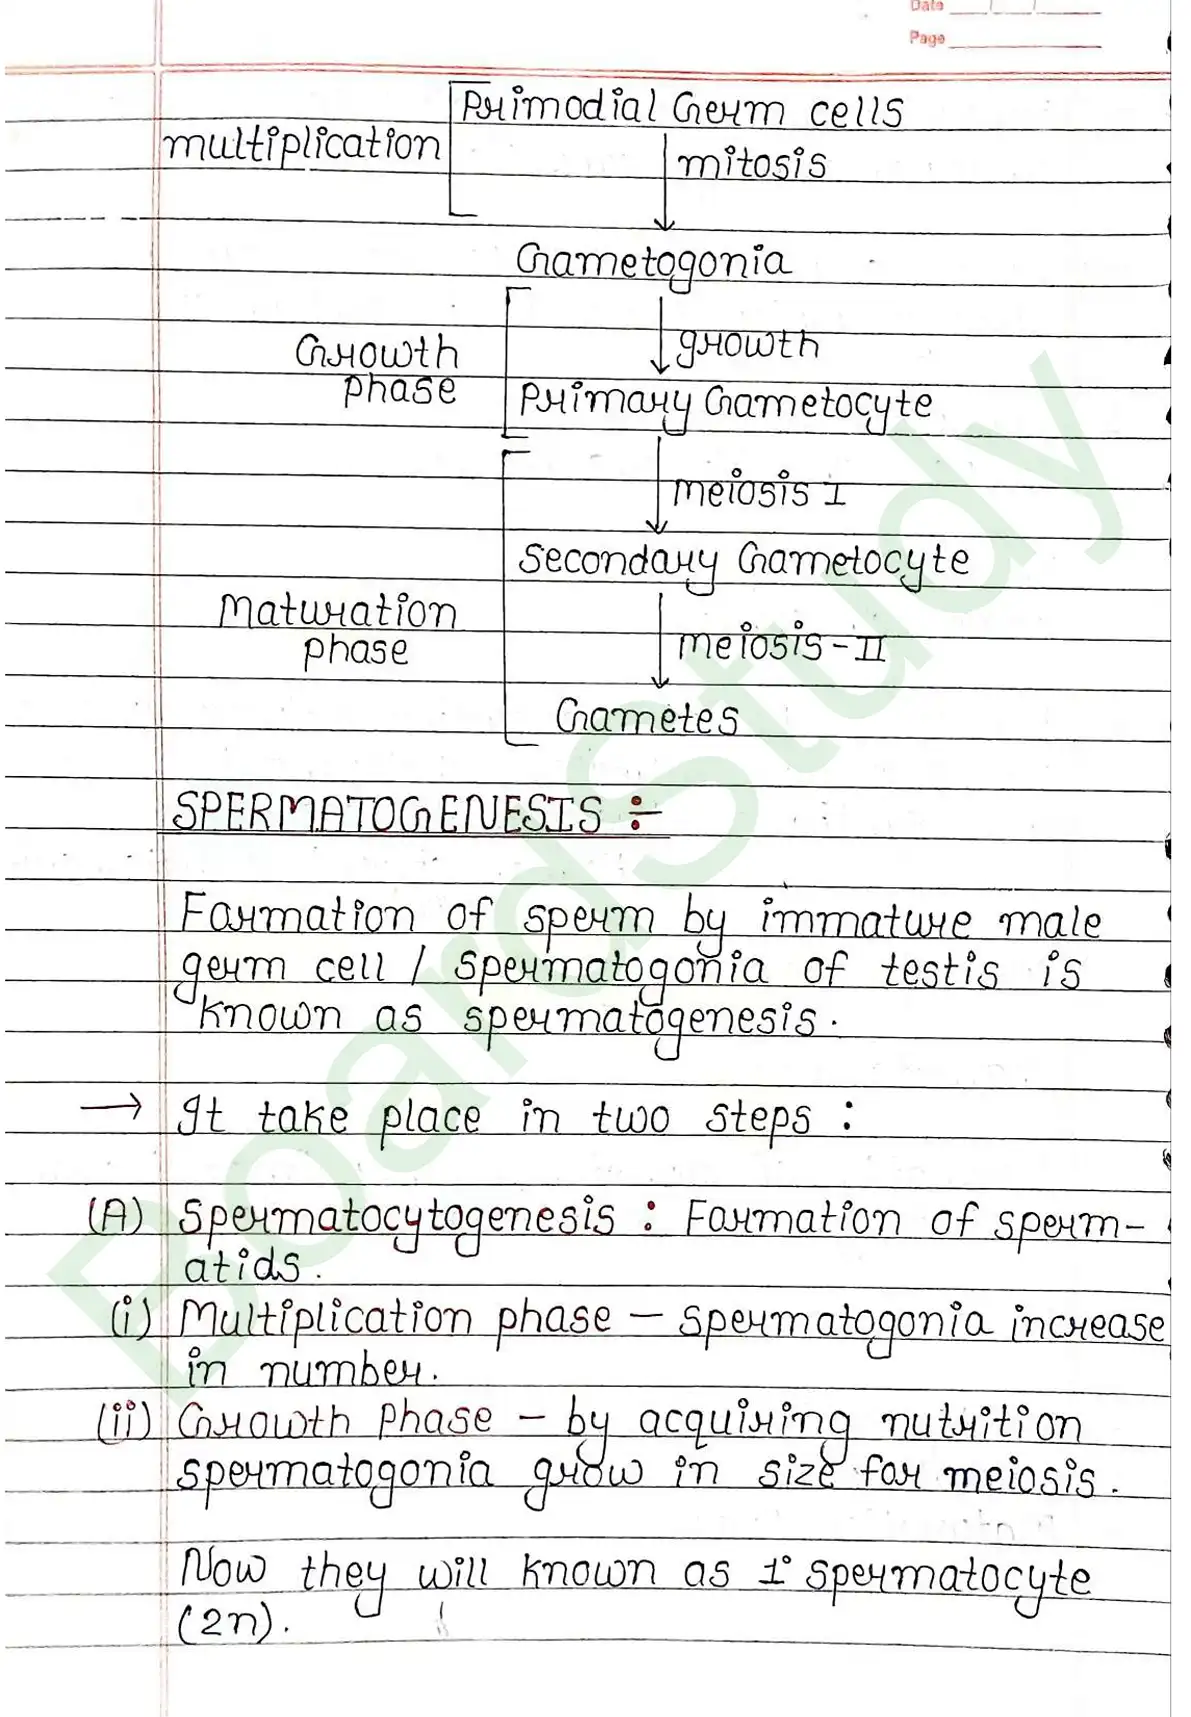 Date
Page
Primodial Germ cells
multiplication
mitosis
Gametogonia
growth
Growth
phase
Primary Gametocyte
meiosis I
Secondary Gametocyte
Maturation
phase
meiosis - II
Gametes
SPERMATOGENESIS :-
Formation of sperm by immature male
germ cell / spermatogonia of testis is
known as spermatogenesis.
→ It take place in two steps :
(A) Spermatocytogenesis : Formation of sperm-
atids.
(i) Multiplication phase – spermatogonia increase
in number.
(ii) Growth Phase – by acquiring nutrition
spermatogonia grow in size for meiosis.
Now they will known as 1° spermatocyte
(2n).
BoardStudy